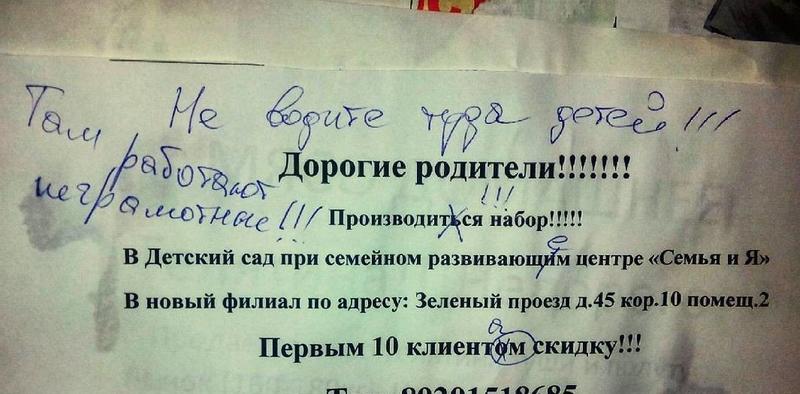 Не водите туда детей!!!
Там работают
неграмотные!!!
Дорогие родители!!!!!!!
!!!
Производиться набор!!!!!
е
В Детский сад при семейном развивающим центре «Семья и Я»
В новый филиал по адресу: Зеленый проезд д.45 кор.10 помещ.2
а
Первым 10 клиентом скидку!!!